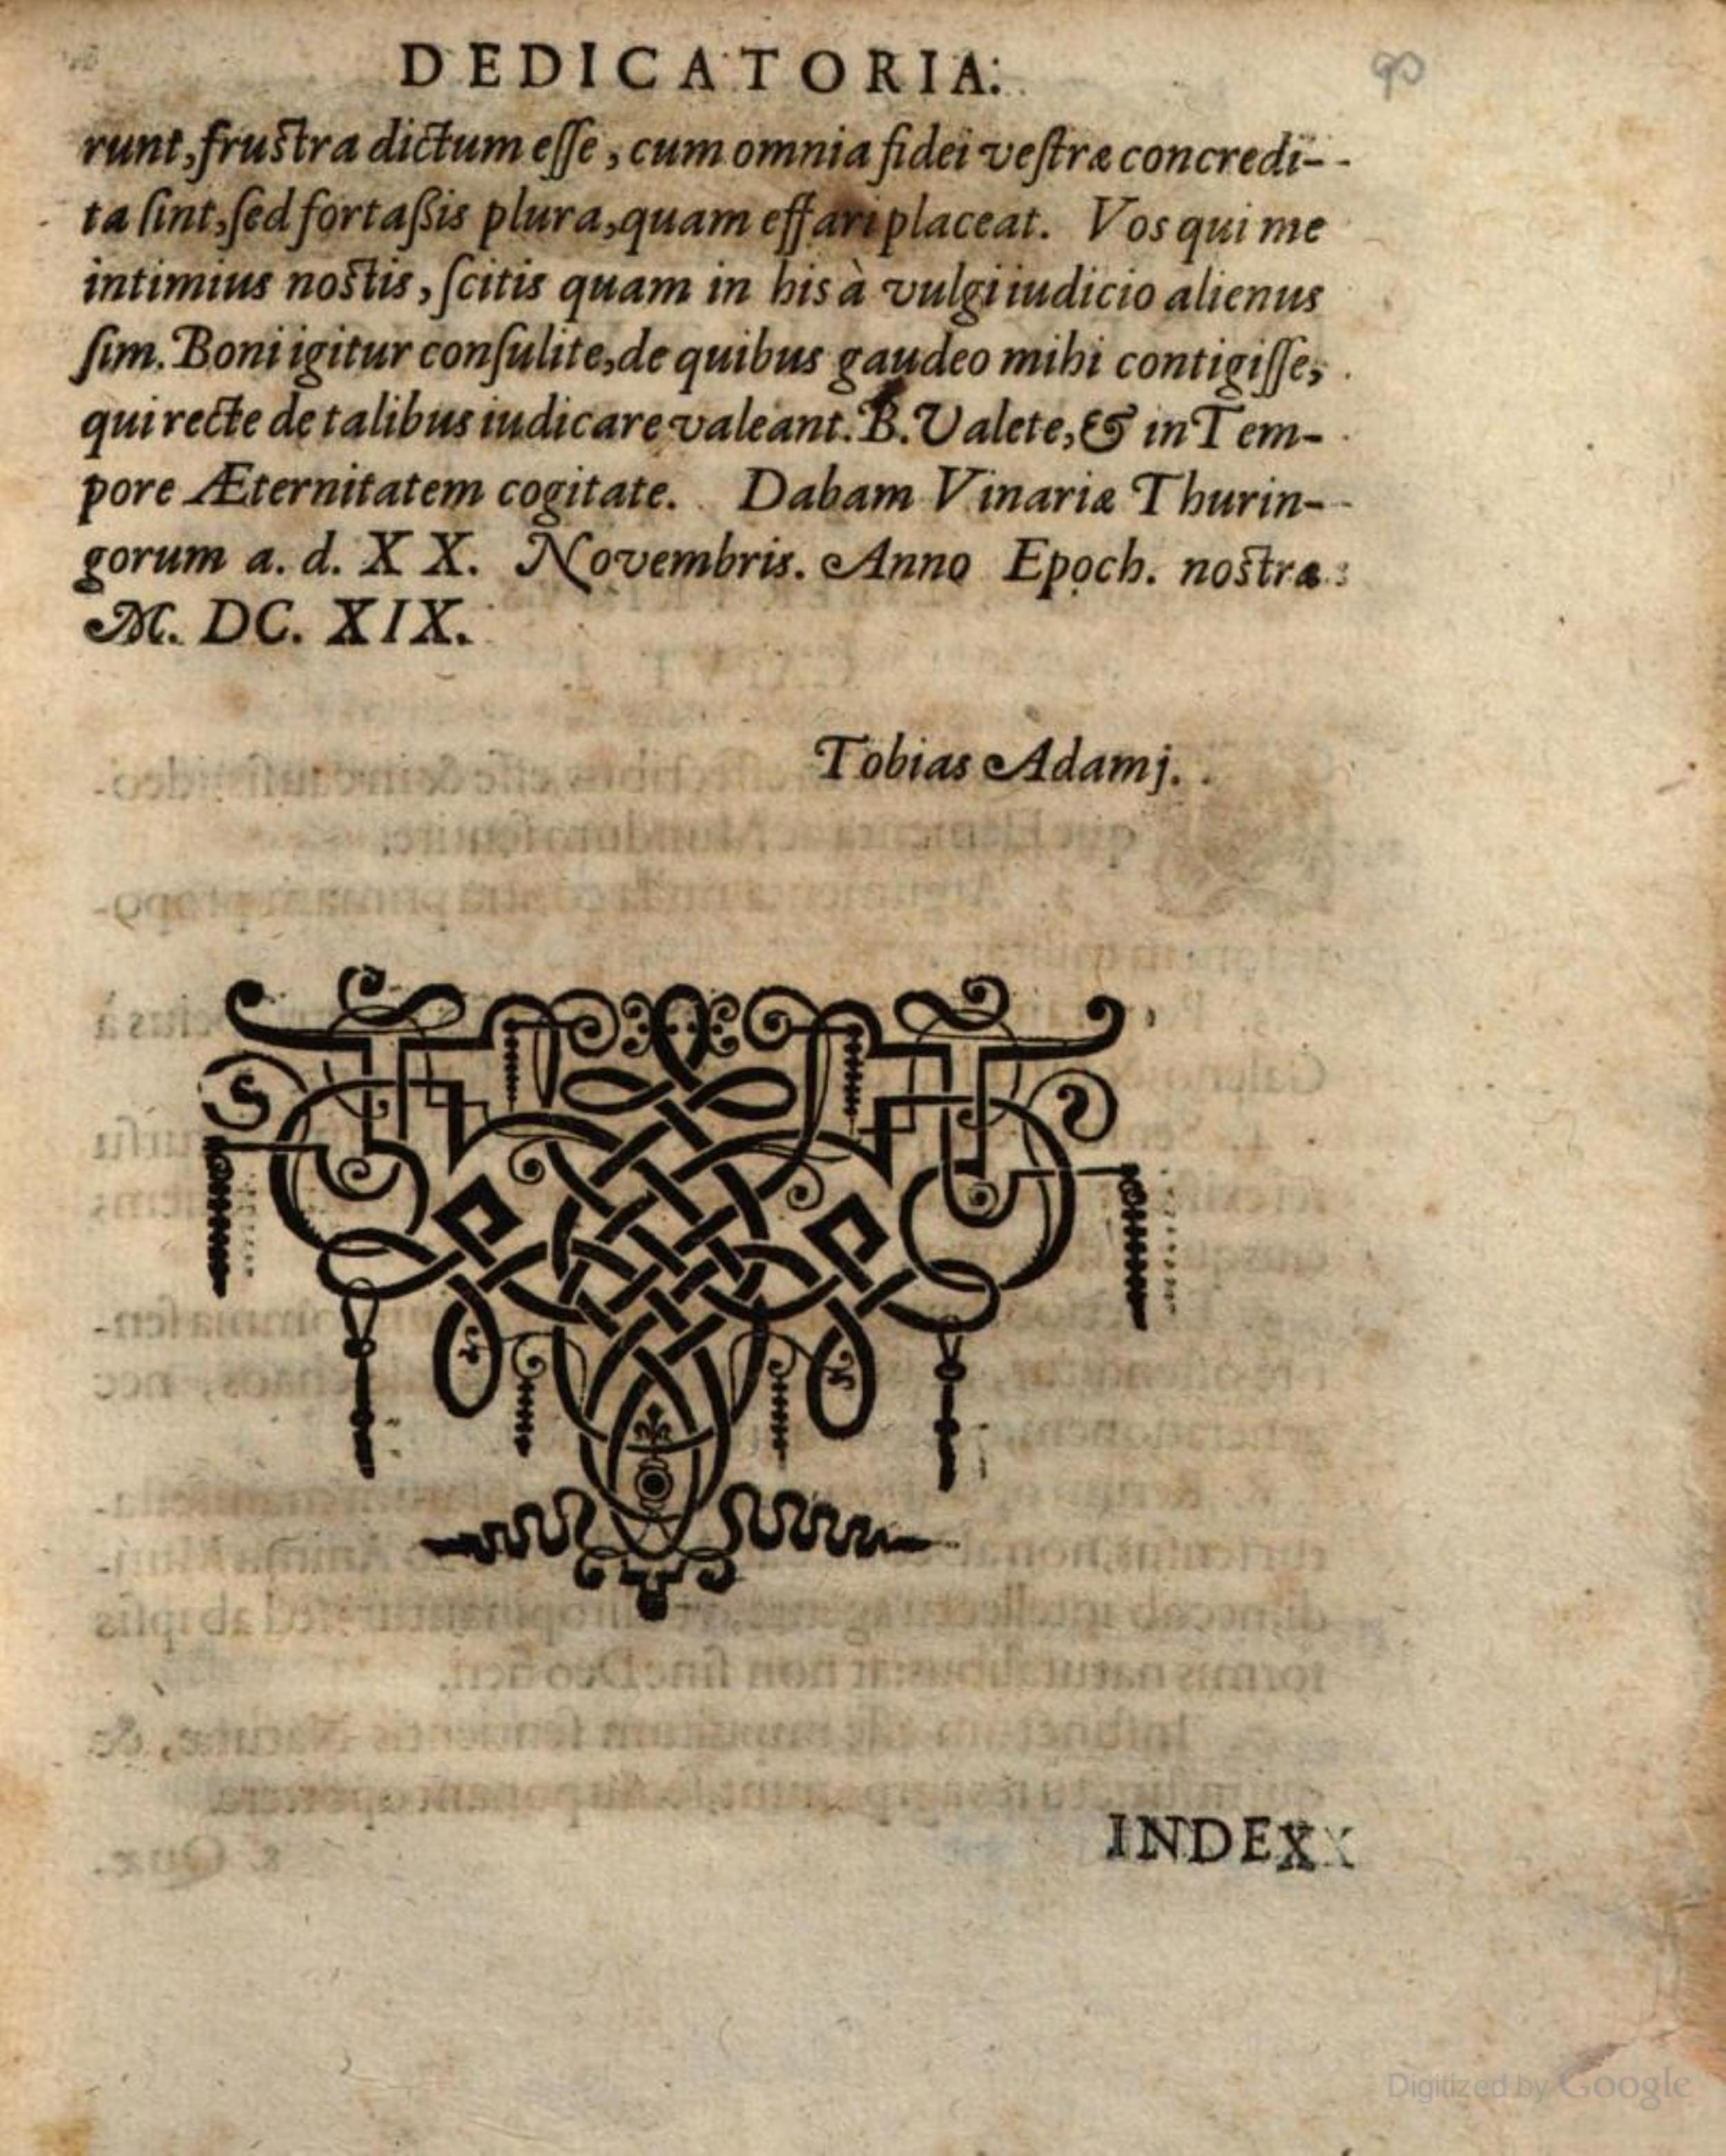 DEDICATORIA.
runt, frustra dictum esse, cum omnia fidei vestræ concredi-
ta sint, sed fortaßis plura, quam effari placeat. Vos qui me
intimius nostis, scitis quam in his à vulgi iudicio alienus
sim. Boni igitur consulite, de quibus gaudeo mihi contigisse,
qui recte de talibus iudicare valeant. B. Valete, & in Tem-
pore Æternitatem cogitate. Dabam Vinariæ Thurin-
gorum a. d. XX. Novembris. Anno Epoch. nostræ
M. DC. XIX.
Tobias Adamj.
INDEX
Digitized by Google